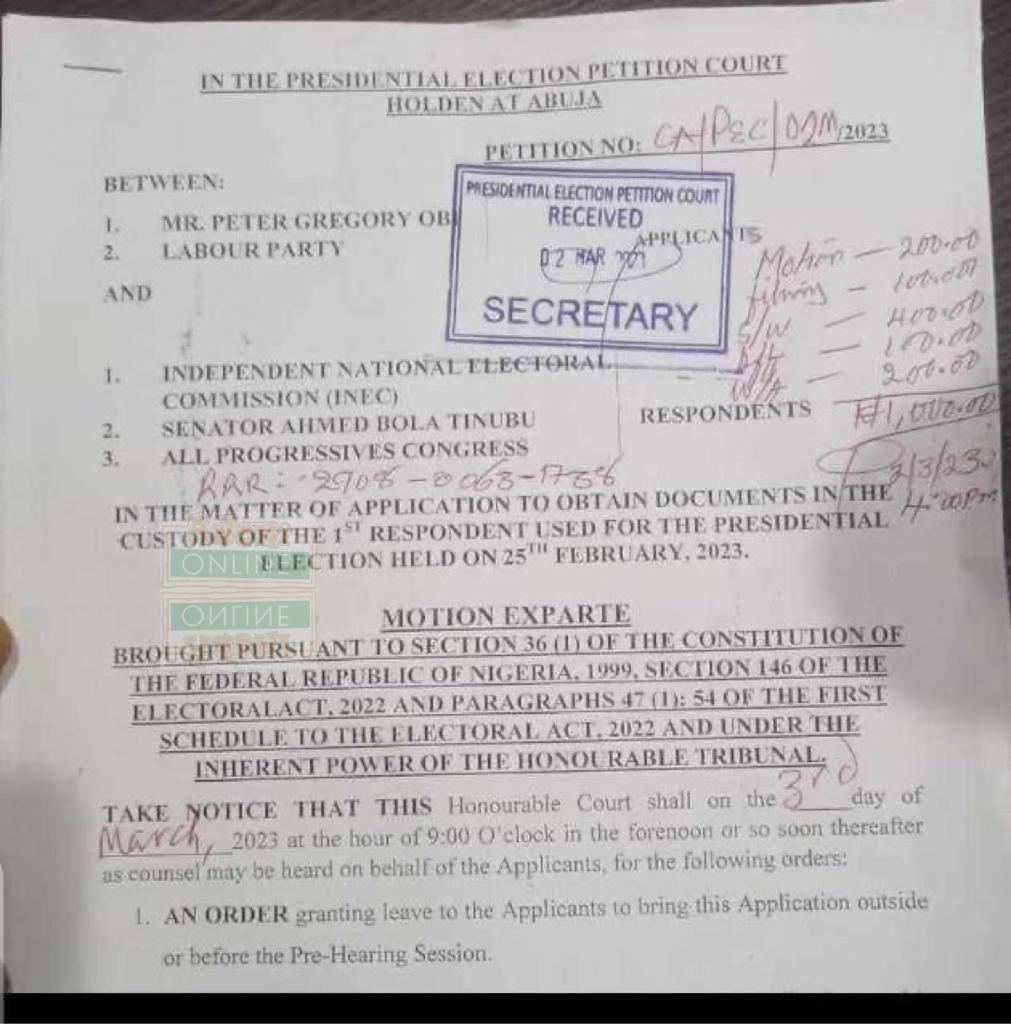 IN THE PRESIDENTIAL ELECTION PETITION COURT
HOLDEN AT ABUJA
PETITION NO: CA/PEC/02M/2023
BETWEEN:
1. MR. PETER GREGORY OB
2. LABOUR PARTY
APPLICANTS
PRESIDENTIAL ELECTION PETITION COURT
RECEIVED
02 MAR
SECRETARY
Motion — 200.00
filing — 100.00
S/W — 400.00
— 100.00
W/A — 200.00
₦1,000.00
2/3/23
4:00pm
AND
1. INDEPENDENT NATIONAL ELECTORAL
COMMISSION (INEC)
2. SENATOR AHMED BOLA TINUBU
RESPONDENTS
3. ALL PROGRESSIVES CONGRESS
RRR: -2908-0063-1738
IN THE MATTER OF APPLICATION TO OBTAIN DOCUMENTS IN THE
CUSTODY OF THE 1ST RESPONDENT USED FOR THE PRESIDENTIAL
ELECTION HELD ON 25TH FEBRUARY, 2023.
ONLINE
ONLINE
MOTION EXPARTE
BROUGHT PURSUANT TO SECTION 36 (1) OF THE CONSTITUTION OF
THE FEDERAL REPUBLIC OF NIGERIA, 1999, SECTION 146 OF THE
ELECTORALACT, 2022 AND PARAGRAPHS 47 (1); 54 OF THE FIRST
SCHEDULE TO THE ELECTORAL ACT, 2022 AND UNDER THE
INHERENT POWER OF THE HONOURABLE TRIBUNAL.
TAKE NOTICE THAT THIS Honourable Court shall on the 3rd day of
March, 2023 at the hour of 9:00 O'clock in the forenoon or so soon thereafter
as counsel may be heard on behalf of the Applicants, for the following orders:
1. AN ORDER granting leave to the Applicants to bring this Application outside
or before the Pre-Hearing Session.